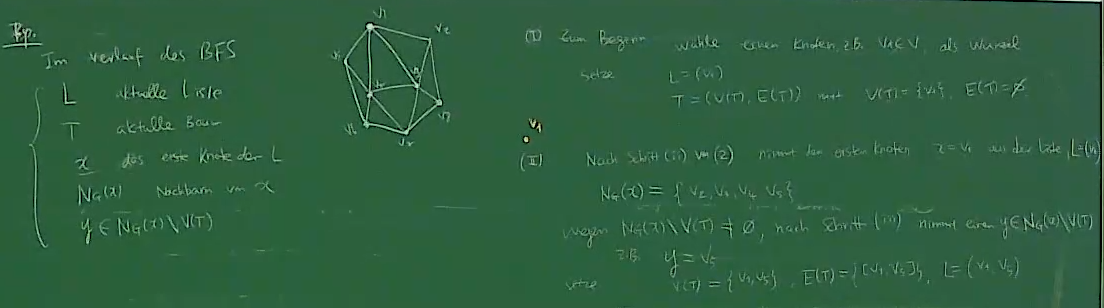 Bsp.
Im verlauf des BFS
L aktuelle Liste
T aktulle Baum
x das erste Knote der L
N_G(x) Nachbarn von x
y ∈ N_G(x)\V(T)
v1
v2
v7
v6
(I) Zum Beginn wähle einen Knoten, z.B. v1 ∈ V, als Wurzel
setze L = (v1)
T = (V(T), E(T)) mit V(T) = {v1}, E(T) = ∅
v1
(II) Nach Schritt (ii) von (2) nimmt den ersten Knoten x = v1 aus der Liste, L = (v1)
N_G(x) = { v2, v3, v4, v5 }
wegen N_G(x)\V(T) ≠ ∅, nach Schritt (iii) nimmt einen y ∈ N_G(x)\V(T)
z.B. y = v5
setze V(T) = {v1, v5}, E(T) = {[v1, v5]}, L = (v1, v5)